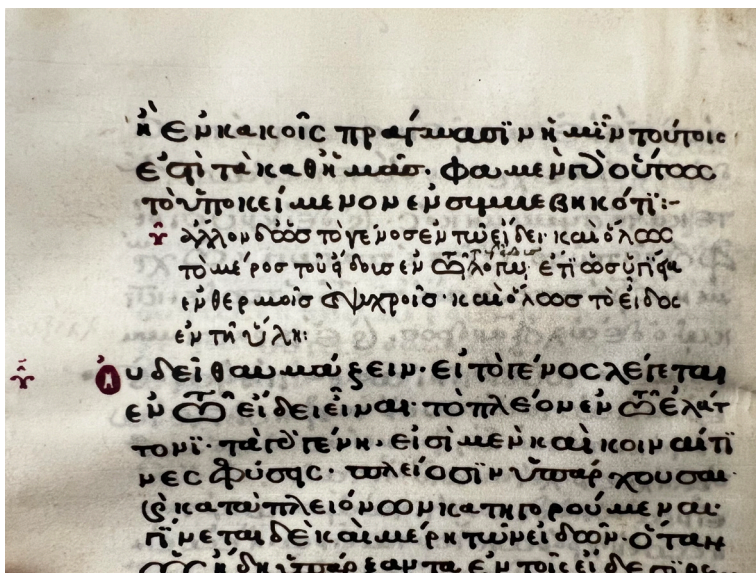 ἢ ἐν κακοῖς πράγμασϊν ἡμῖν τούτοις
ἐστὶ τὰ καθ' ἡμᾶσ. φαμὲν οὕτως
τὸ ϋποκείμενον ἐν συμβεβηκότϊ:-
ἄλλον δὲ ὡς τὸ γένοσ ἐν τῶ εἴδει· καὶ ὅλως
τὸ μέροσ τοῦ εἴδουσ ἐν τῶ λόγω· ἔτι ὡσ ὑγίεια
ἐν θερμοῖσ καὶ ψυχροῖσ· καὶ ὅλωσ τὸ εἶδοσ
ἐν τῆ ὕλη:
Οὐ δεῖ θαυμάζειν. εἰ τὸ γένοσ λέγεται
ἐν τῶ εἴδει εἶναι· τὸ πλέον ἐν τῶ ἐλάτ
τονϊ· τὰ γὰρ γένη. εἰσὶ μὲν καὶ κοιναί τϊ
νες φύσεις· πλείοσϊν ὑπάρχουσαι·
καὶ κατὰ πλειόνων κατηγορούμεναι·
γίνεται δὲ καὶ μέρη τῶν εἰδῶν· ὅταν
ὡς ἤδη ὑπάρξαντα ἐν τοῖς εἴδεσϊ